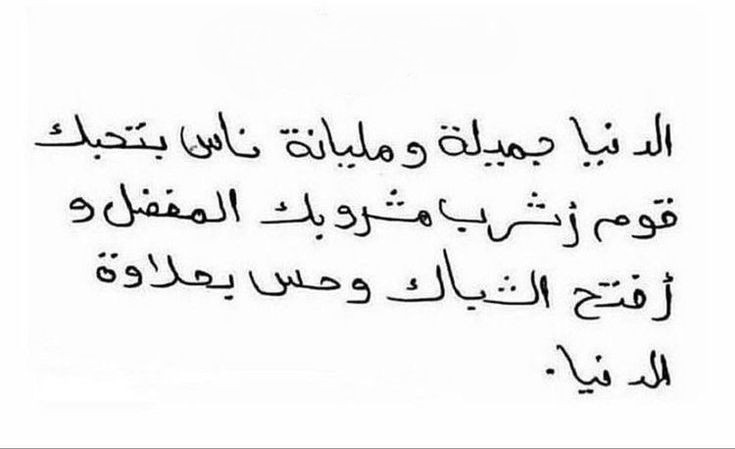 الدنيا جميلة ومليانة ناس بتحبك
قوم أشرب مشروبك المفضل و
أفتح الشباك وحس بحلاوة
الدنيا.